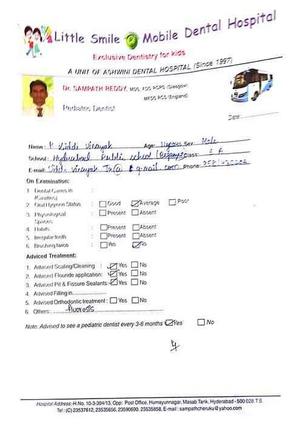 Little Smile Mobile Dental Hospital
Exclusive Dentistry for kids
A UNIT OF ASHWINI DENTAL HOSPITAL (Since 1997)
Dr. SAMPATH REDDY, MDS, FDS RCPS (Glasgow)
MFDS RCS (England)
Pediatric Dentist
Date:
Name: Vinayak Age: Sex: Male
School: Hyderabad Public school Class:
E-mail: Vinayak @ g-mail.com Phone:
On Examination:
1 Dental Caries in
2 Oral Hygiene Status : Good Average Poor
3 Physiological : Present Absent
Spaces
4 Habits : Present Absent
5 Irregular teeth : Present Absent
6 Brushing : Yes No
Adviced Treatment:
1. Advised Scaling/Cleaning : Yes No
2. Advised Flouride application : Yes No
3. Advised Pit & Fissure Sealants : Yes No
4. Advised Filling in
5. Advised Orthodontic treatment : Yes No
6. Others :
Note: Advised to see a pediatric dentist every 3-6 months Yes No
Hospital Address: H.No. 10-3-304/13, Opp: Post Office, Humayunnagar, Masab Tank, Hyderabad - 500 028 T.S.
Tel: (C) 23537612, 23535656, 23590690, 23535858, E-mail: sampathcheruku@yahoo.com